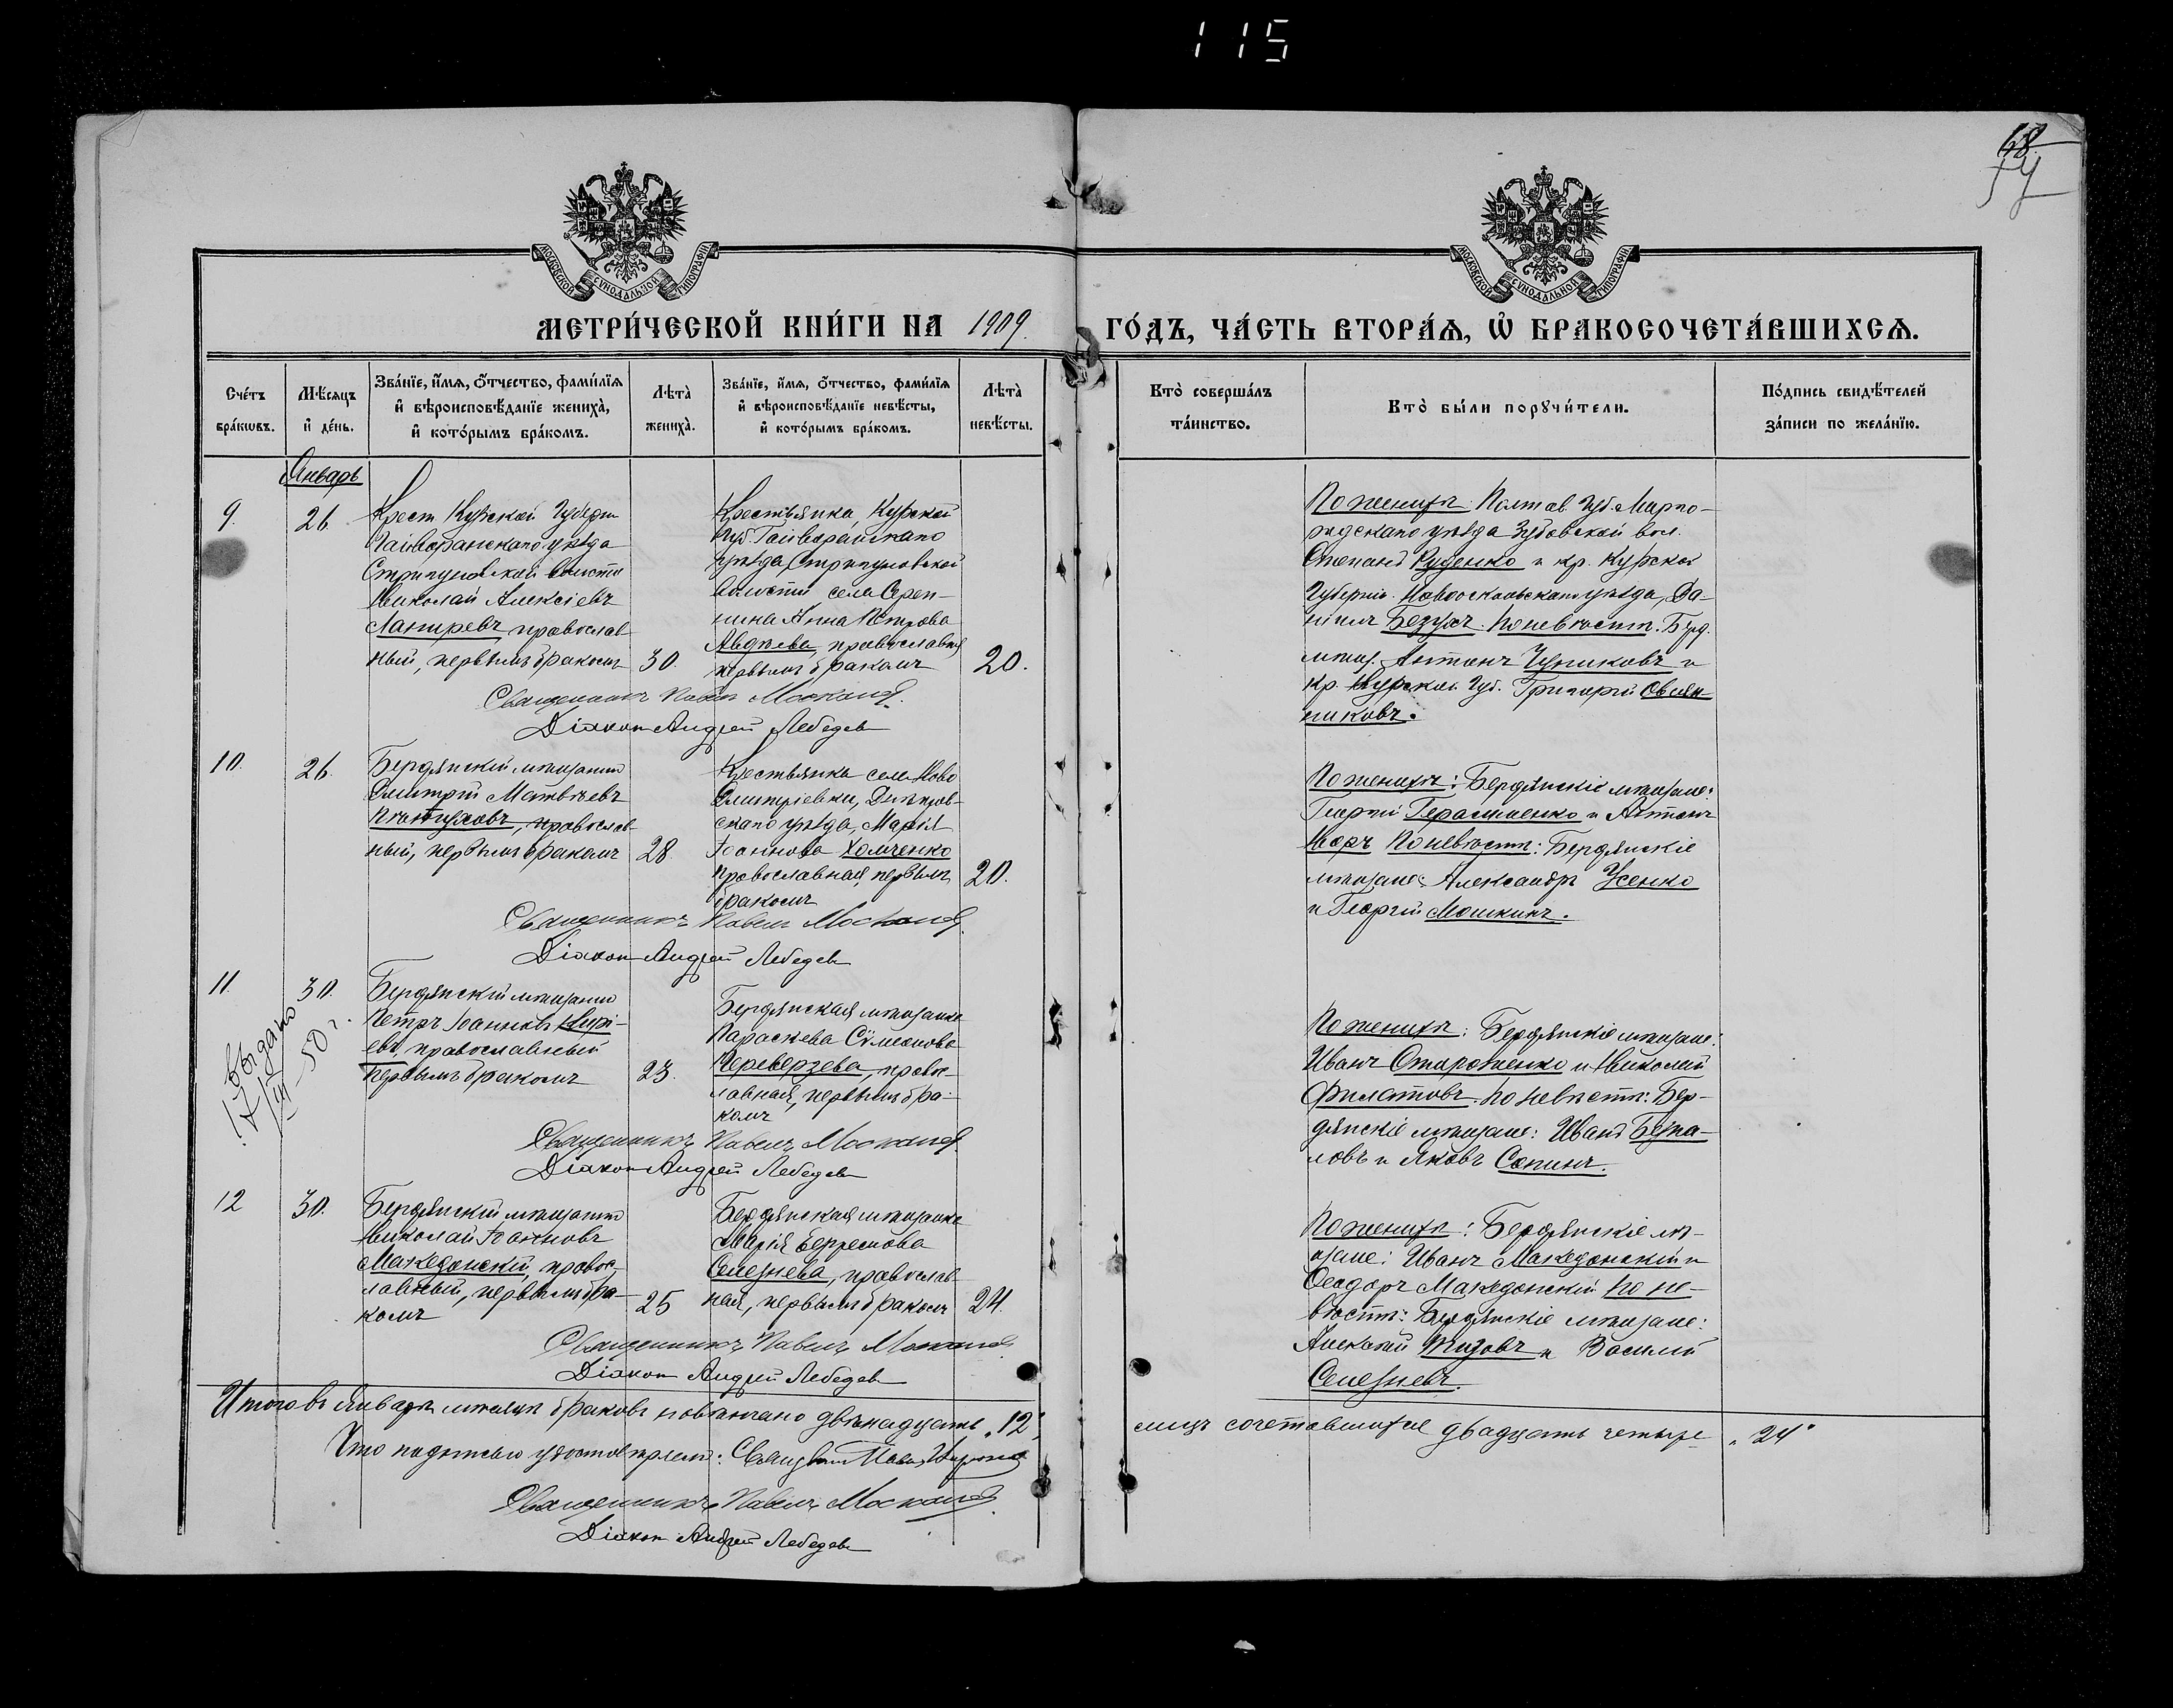 115
МОСКОВСКОЙ СѴНОДАЛЬНОЙ ТИПОГРАФІИ
МОСКОВСКОЙ СѴНОДАЛЬНОЙ ТИПОГРАФІИ
МЕТРИ́ЧЕСКОЙ КНИ́ГИ НА 1909. ГО́ДЪ, ЧА́СТЬ ВТОРА́Я, Ѡ҆ БРАКОСОЧЕТА́ВШИХСЯ.
Сче́тъ бра́кѡвъ.
Мѣ́сяцъ и҆ де́нь.
Зва́нїе, и҆́мя, ѻ҆́тчество, фами́лїя и҆ вѣроисповѣ́данїе жениха̀, и҆ кото́рымъ бра́комъ.
Лѣта̀ жениха̀.
Зва́нїе, и҆́мя, ѻ҆́тчество, фами́лїя и҆ вѣроисповѣ́данїе невѣ́сты, и҆ кото́рымъ бра́комъ.
Лѣта̀ невѣ́сты.
Кто̀ соверша́лъ та́инство.
Кто̀ бы́ли порꙋчи́тели.
По́дпись свидѣ́телей за́писи по жела́нїю.
Январь
9.
26
Крест. Курской Губерн
Гайворонскаго уѣзда
Стригуновской волости
Николай Алексіевъ
православ-
ный, первымъ бракомъ
30.
Крестьянка, Курской
Губ. Гайворонскаго
уѣзда, Стригуновской
волости села
Анна Петрова
Авдѣева, православная
первымъ бракомъ
20.
Священникъ Павелъ
Діаконъ Андрей Лебедевъ
По женихѣ: Полтав. Губ. Мирго-
родскаго уѣзда Зубовской вол.
Степанъ Руденко и кр. Курской
Губерніи. Новооскольскаго уѣзда, Да-
ніилъ Безухъ. По невѣстѣ. Берд.
мѣщ. Антонъ и
кр. Курской Губ. Григорій Овсян-
никовъ.
10.
26.
Бердянскій мѣщанинъ
Димитрій Матвѣевъ
православ-
ный, первымъ бракомъ
28.
Крестьянка села Ново
Димитріевки, Днѣпров-
скаго уѣзда, Марія
Іоаннова Хомченко
православная, первымъ
бракомъ
20.
Священникъ Павелъ
Діаконъ Андрей Лебедевъ
По женихѣ: Бердянскіе мѣщане:
Георгій Герасименко и Антонъ
По невѣстѣ: Бердянскіе
мѣщане: Александръ Усенко
и Георгій Мошкинъ.
11.
30.
Выдано
17/III-50 г.
Бердянскій мѣщанинъ
Петръ Іоанновъ
православный
первымъ бракомъ
23.
Бердянская мѣщанка
Параскева Сѵмеонова
Переверзева, правос-
лавная, первымъ бра-
комъ
Священникъ Павелъ
Діаконъ Андрей Лебедевъ
По женихѣ: Бердянскіе мѣщане:
Иванъ Стороженко и Николай
Филатовъ. По невѣстѣ: Бер-
дянскіе мѣщане: Иванъ
и Яковъ Сопинъ.
12
30.
Бердянскій мѣщанинъ
Николай Іоанновъ
Македонскій, правос-
лавный, первымъ бра-
комъ
25
Бердянская мѣщанка
Марія
Селезнева, православ-
ная, первымъ бракомъ
24.
Священникъ Павелъ
Діаконъ Андрей Лебедевъ
По женихѣ: Бердянскіе мѣ-
щане: Иванъ Македонскій и
Ѳеодоръ Македонскій по не-
вѣстѣ: Бердянскіе мѣщане:
Алексѣй и Василій
Селезневъ.
Итого въ Январѣ мѣсяцѣ браковъ повѣнчано двѣнадцать „12", лицъ сочетавшихся двадцать четыре „24"
Что подписью удостовѣряемъ:
Священникъ Павелъ
Діаконъ Андрей Лебедевъ